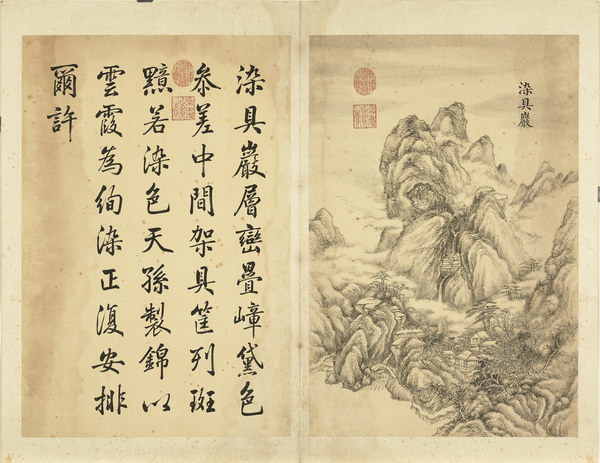 染具巖
染具巖層巒疊嶂黛色
叅差中間架具筐列斑
黯若染色天孫製錦以
雲霞為絢染正復安排
爾許